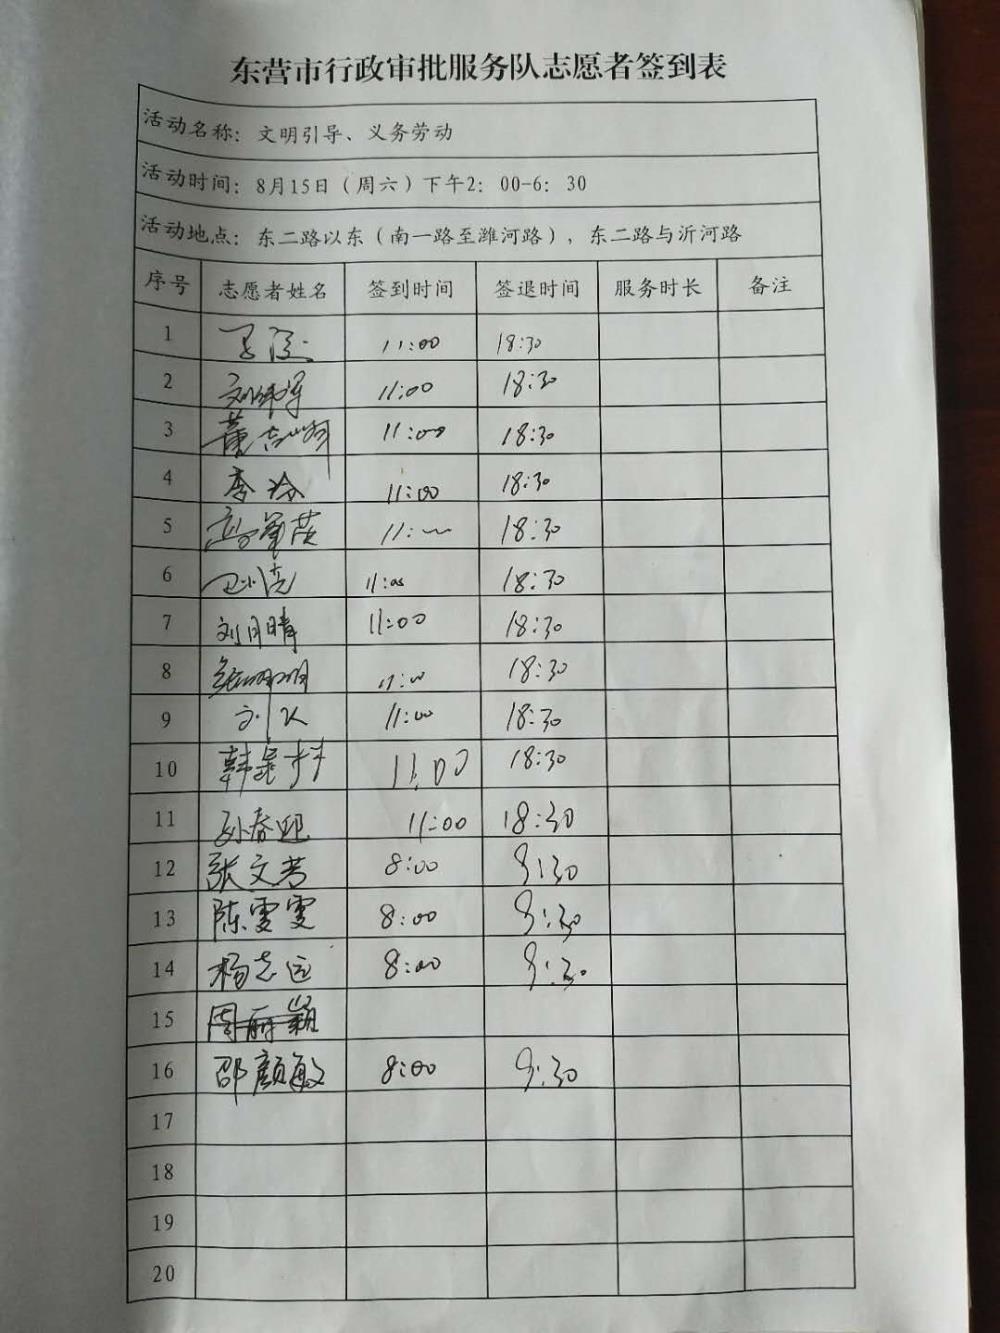 东营市行政审批服务队志愿者签到表
活动名称：文明引导、义务劳动
活动时间：8月15日（周六）下午2：00-6：30
活动地点：东二路以东（南一路至潍河路），东二路与沂河路
序号 志愿者姓名 签到时间 签退时间 服务时长 备注
1 11:00 18:30
2 11:00 18:30
3 11:00 18:30
4 11:00 18:30
5 11: 18:30
6 11:00 18:30
7 刘月晴 11:00 18:30
8 11:00 18:30
9 11:00 18:30
10 11:00 18:30
11 孙春迎 11:00 18:30
12 张文芳 8:00 9:30
13 陈雯雯 8:00 9:30
14 杨志远 8:00 9:30
15 周丽颖
16 邵颜敏 8:00 9:30
17
18
19
20